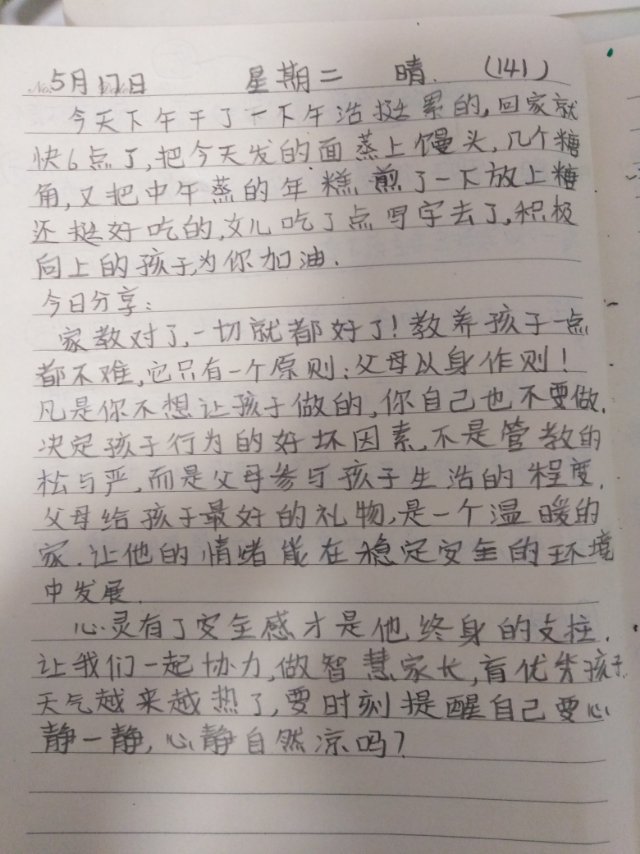 5月17日 星期二 晴. (141)
今天下午干了一下午活挺累的,回家就
快6点了,把今天发的面蒸上馒头,几个糖
角,又把中午蒸的年糕煎了一下放上糖
还挺好吃的,女儿吃了点写字去了,积极
向上的孩子,为你加油.
今日分享:
家教对了,一切就都好了!教养孩子一点
都不难,它只有一个原则:父母以身作则!
凡是你不想让孩子做的,你自己也不要做.
决定孩子行为的好坏因素,不是管教的
松与严,而是父母参与孩子生活的程度.
父母给孩子最好的礼物,是一个温暖的
家.让他的情绪能在稳定安全的环境
中发展.
心灵有了安全感才是他终身的支柱.
让我们一起协力,做智慧家长,育优秀孩子.
天气越来越热了,要时刻提醒自己要心
静一静,心静自然凉吗?